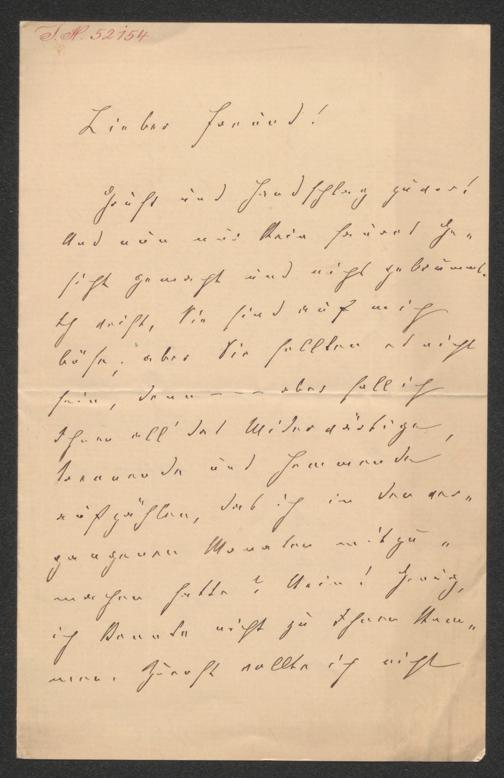 I. N. 52154
Lieber Freund!
Gruß und Handschlag zuvor!
Und nun nur kein saures Ge-
sicht gemacht und nicht gebrummt.
Ich weiß, Sie sind auf mich
böse; aber Sie sollten es nicht
sein, denn – – – aber soll ich
Ihnen all' das Widerwärtige,
Trennende und Hemmende
aufzählen, das ich in den ver-
gangenen Monaten mitzu-
machen hatte? Nein! Genug,
ich konnte nicht zu Ihnen kom-
men. Zuerst wollte ich nicht